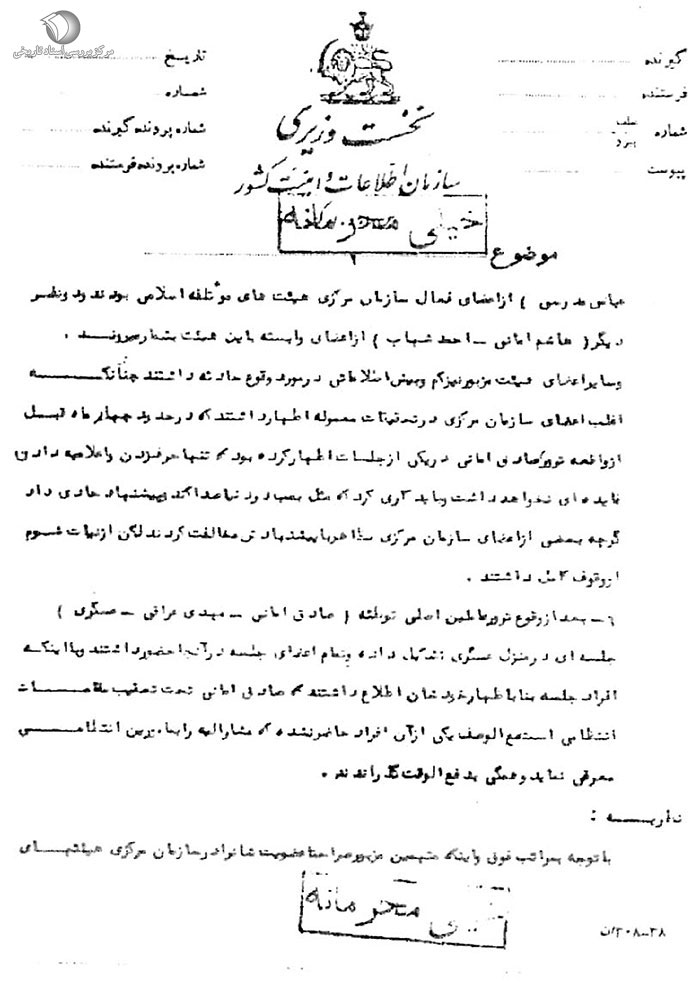 مرکز بررسی اسناد تاریخی
گیرنده
فرستنده
شماره
پیوست
تاریخ
شماره
شماره پرونده گیرنده
شماره پرونده فرستنده
نخست وزیری
سازمان اطلاعات و امنیت کشور
خیلی محرمانه
موضوع
عباس مدرسی ) از اعضای فعال سازمان مرکزی هیئت های موتلفه اسلامی بودند و دو نفر
دیگر ( هاشم امانی - احمد شهاب ) از اعضای وابسته باین هیئت بشمار میروند .
وسایر اعضای هیئت مزبور نیز کم و بیش اطلاعاتی در مورد وقوع حادثه داشتند چنانکه
اغلب اعضای سازمان مرکزی در تحقیقات معموله اظهار داشتند که در حدود چهار ماه قبل
از واقعه ترور صادق امانی در یکی از جلسات اظهار کرده بود که تنها حرف زدن و اعلامیه دادن
فایده ای نخواهد داشت و باید کاری کرد که مثل بمب دود نما صدا کند و پیشنهاد حادی داد
گرچه بعضی از اعضای سازمان مرکزی با پیشنهاد مخالفت کردند لکن از نیات شوم
او وقوف کامل داشتند .
۶ - بعد از وقوع ترور عاملین اصلی توطئه ( صادق امانی - مهدی عراقی - عسگری )
جلسه ای در منزل عسگری تشکیل داده و تمام اعضای جلسه در آنجا حضور داشتند و با اینکه
افراد جلسه بنا باظهار خودشان اطلاع داشتند که صادق امانی تحت تعقیب مقامات
انتظامی است مع الوصف یکی از آن افراد حاضر نشده که مشارالیه را بمامورین انتظامی
معرفی نماید و همگی بدفع الوقت گذراندند .
نظریه :
با توجه بمراتب فوق و اینکه متهمین مزبور صراحتا عضویت شانرا در سازمان مرکزی هیئتهای
خیلی محرمانه